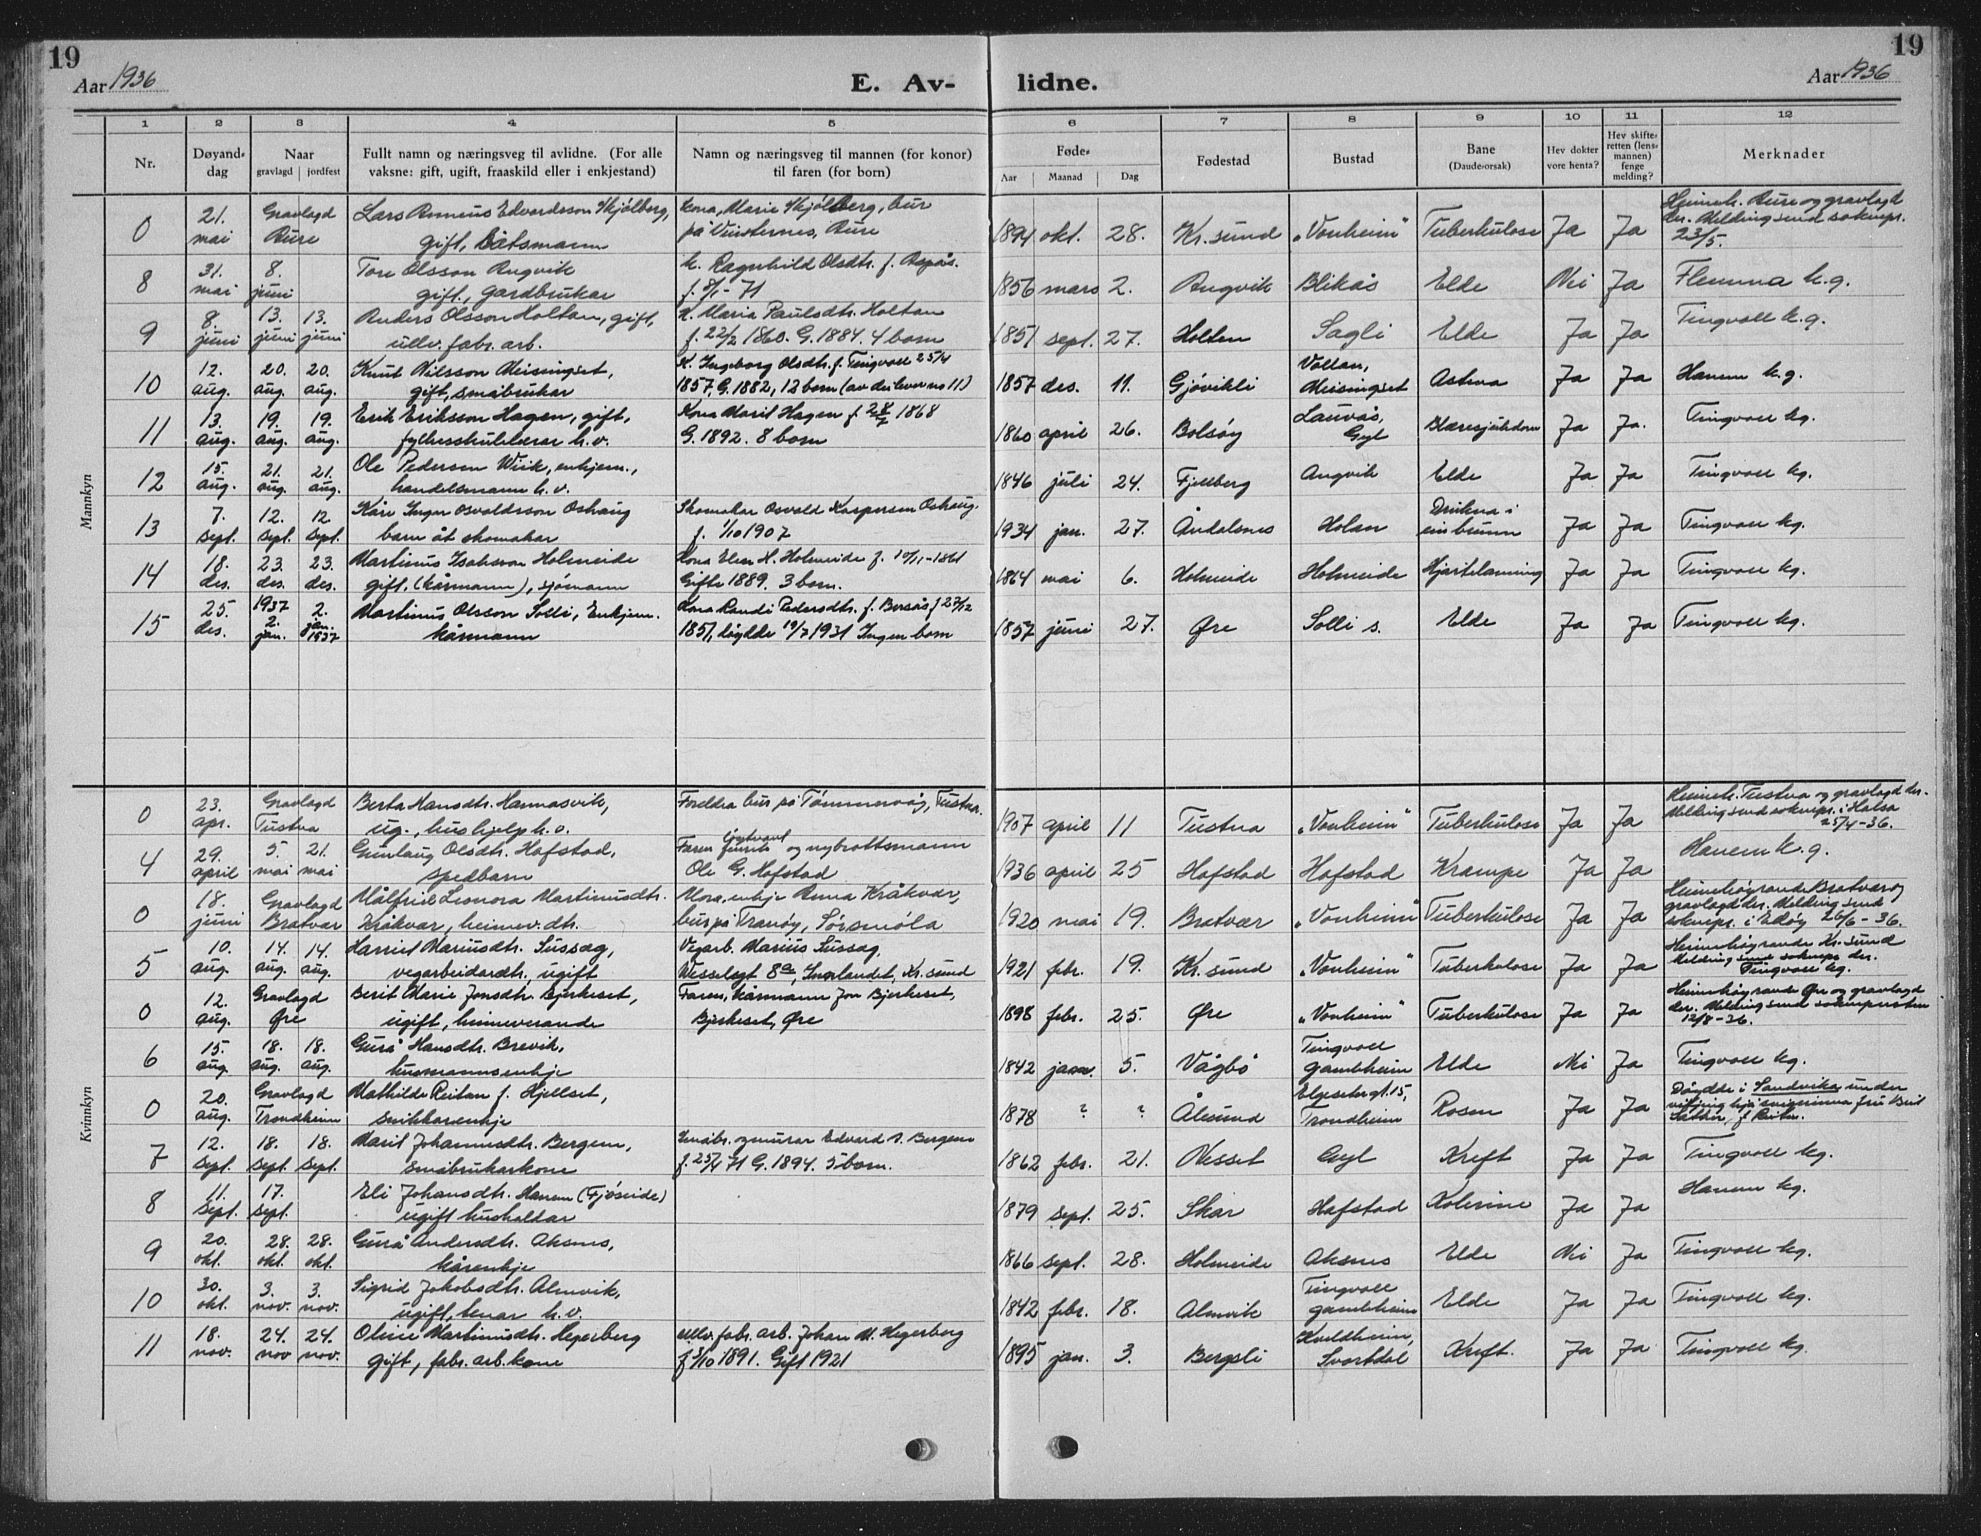 19
19
Aar 1936
E. Av-
lidne.
Aar 1936
1 2 3 4 5 6 7 8 9 10 11 12
Nr.
Døyand-
dag
Naar
gravlagd jordfest
Fullt namn og næringsveg til avlidne. (For alle
vaksne: gift, ugift, fraaskild eller i enkjestand)
Namn og næringsveg til mannen (for konor)
til faren (for born)
Føde-
Aar Maanad Dag
Fødestad
Bustad
Bane
(Daude-orsak)
Hev dokter
vore henta?
Hev skifte-
retten (lens-
mannen)
fenge
melding?
Merknader
Mannkyn
0 21. mai Gravlagd Aure
Lars Edvardsson Skjølberg,
gift, båtsmann
Kona, Marie Skjølberg, bur
på Aure
1894 okt. 28. Kr.sund "Vonheim" Tuberkulose Ja Ja
Heimeh. Aure og gravlagd
der. Melding send soknepr.
23/5.
8 31. mai 8. juni
Tore Olsson Angvik
gift, gardbrukar
k. Ragnhild Olsdtr. f. Aspås.
f. 8/1-71
1856 mars 2. Angvik Blikås Elde Nei Ja Flemma k.g.
9 8. juni 13. juni 13. juni
Anders Olsson Holtan, gift,
ullv.fabr. arb.
K. Maria Paulsdtr. Holtan
f. 22/2 1860. G. 1884. 4 born
1851 sept. 27. Holten Sagli Elde Ja Ja Tingvoll k.g.
10 12. aug. 20. aug. 20. aug.
Knut Nilsson Meisingset,
gift, småbrukar
K. Ingeborg Olsdtr. f. Tingvoll 25/4
1857, G. 1882, 12 born (av dei lever no 11)
1857 des. 11. Gjøvikli Vollan, Meisingset Astma Ja Ja Hanem k.g.
11 13. aug. 19. aug. 19. aug.
Erik Eriksson Hagen, gift,
fylkesskulelærar h.v.
Kona Marit Hagen f. 1868
G. 1892. 8 born
1860 april 26. Bolsøy Lauvås, Gyl Blæresjukdom Ja Ja. Tingvoll kg.
12 15. aug. 21. aug. 21. aug.
Ole Pederson Wiik, enkjem.,
handelsmann h.v.
1846 juli 24. Fjellberg Angvik Elde Ja Ja Tingvoll kg.
13 7. sept. 12. sept. 12. sept.
Kåre Inger Osvaldsson Oshaug
barn åt skomakar
Skomakar Osvald Kaspersen Oshaug.
f. 1/10 1907
1934 jan. 27. Åndalsnes Holan Drukna i ein brunn Ja Ja Tingvoll kg.
14 18. des. 23. des. 23. des.
Martinus Isakson Holmeide
gift. (kårmann), sjømann
Kona Elen H. Holmeide f. 10/1-1861
Gifte 1889. 3 born.
1864 mai 6. Holmeide Holmeide Hjartelamning Ja Ja Tingvoll kg.
15 25. des. 1937 2. jan. 2. jan. 1937
Martinus Olsson Solli, Enkjem.
kårmann
Kona Randi Pedersdtr. f. Bersås f 27/12
1851, døydde 19/7 1931 Ingen born
1857 juni 27. Øre Solli s. Elde Ja Ja Tingvoll kg.
Kvinnkyn
0 23. apr. Gravlagd Tustna
Berta Hansdtr. Hannasvik,
ug., hushjelp h.v.
Foreldra bur på Tømmervåg, Tustna.
1907 april 11 Tustna "Vonheim" Tuberkulose Ja Ja
Heimeh. Tustna og gravlagd der.
Melding send soknepr. i Halsa
25/4-36.
4 29. april 5. mai 21. mai
Gunlaug Olsdtr. Hofstad,
spedbarn
Faren og nybrottsmann
Ole G. Hofstad
1936 april 25 Hofstad Hofstad Krampe Ja Ja Hanem k.g.
0 18. juni Gravlagd Bratvær
Målfrid Leonora Martinusdtr.
Kråkvær, heimev. dtr.
Mora, enkje Anna Kråkvær,
bur på Tranøy, Sørsmøla
1920 mai 19. Bratvær "Vonheim" Tuberkulose Ja Ja
Heimehøyrande Bratvær og
gravlagd der. Melding send
soknepr. i Edøy 26/6-36.
5 10. aug. 14. aug. 14. aug.
Harriet Mariusdtr. Sussag,
vegarbeidardtr. ugift
Vegarb. Marius Sussag,
Wesselsgt 8a, Innlandet, Kr.sund
1921 febr. 19. Kr.sund "Vonheim" Tuberkulose Ja Ja
Heimehøyrande Kr.sund
Melding send soknepr. der.
Tingvoll kg.
0 12. aug. Gravlagd Øre
Berit Marie Jonsdtr. Bjerkeset,
ugift, heimeverande
Faren, kårmann Jon Bjerkeset,
Bjerkeset, Øre
1898 febr. 25. Øre "Vonheim" Tuberkulose Ja Ja
Heimehøyrande Øre og gravlagd
der. Melding send soknepresten
12/8-36.
6 15. aug. 18. aug. 18. aug.
Gurå Hansdtr. Brevik,
husmannsenkje
1842 jan. 5. Vågbø Tingvoll gamleheim Elde Nei Ja Tingvoll kg.
0 20. aug. Gravlagd Trondheim
Mathilde Reitan f. Hjellset,
snikkarenkje
1878 ? ? Ålesund Elgesetergt. 15, Trondheim Rosen Ja Ja
Døydde i Sandvika under
vitjing hjå svigerinna fru Berit
Sæther, f. Reitan.
7 12. sept. 18. sept. 18. sept.
Marit Johannesdtr. Bergem,
småbrukarkone
Småbr. og murar Edvard S. Bergem
f. 25/4 71 G. 1894. 5 born.
1862 febr. 21. Nesset Gyl Kreft Ja Ja Tingvoll kg.
8 11. sept. 17. sept.
Eli Johansdtr. Hanem (Fjøseide)
ugift hushaldar
1879 sept. 25. Skar Hofstad Kolerine Ja Ja Hanem kg.
9 20. okt. 28. okt. 28. okt.
Gurå Andersdtr. Aksnes,
kårenkje
1866 sept. 28. Holmeide Aksnes Elde Nei Ja Tingvoll kg.
10 30. okt. 3. nov. 3. nov.
Sigrid Jakobsdtr. Almvik,
ugift, tenar h.v.
1842 febr. 18. Almvik Tingvoll gamleheim Elde Ja Ja Tingvoll kg.
11 18. nov. 24. nov 24. nov.
Oline Martinusdtr. Hegerberg
gift, fabr.arb.kone
ullv.fabr. arb. Johan M. Hegerberg
f 3/10 1891. Gift 1921
1895 jan. 3. Bergsli Kveldheim, Svartdal Kreft. Ja Ja Tingvoll kg.